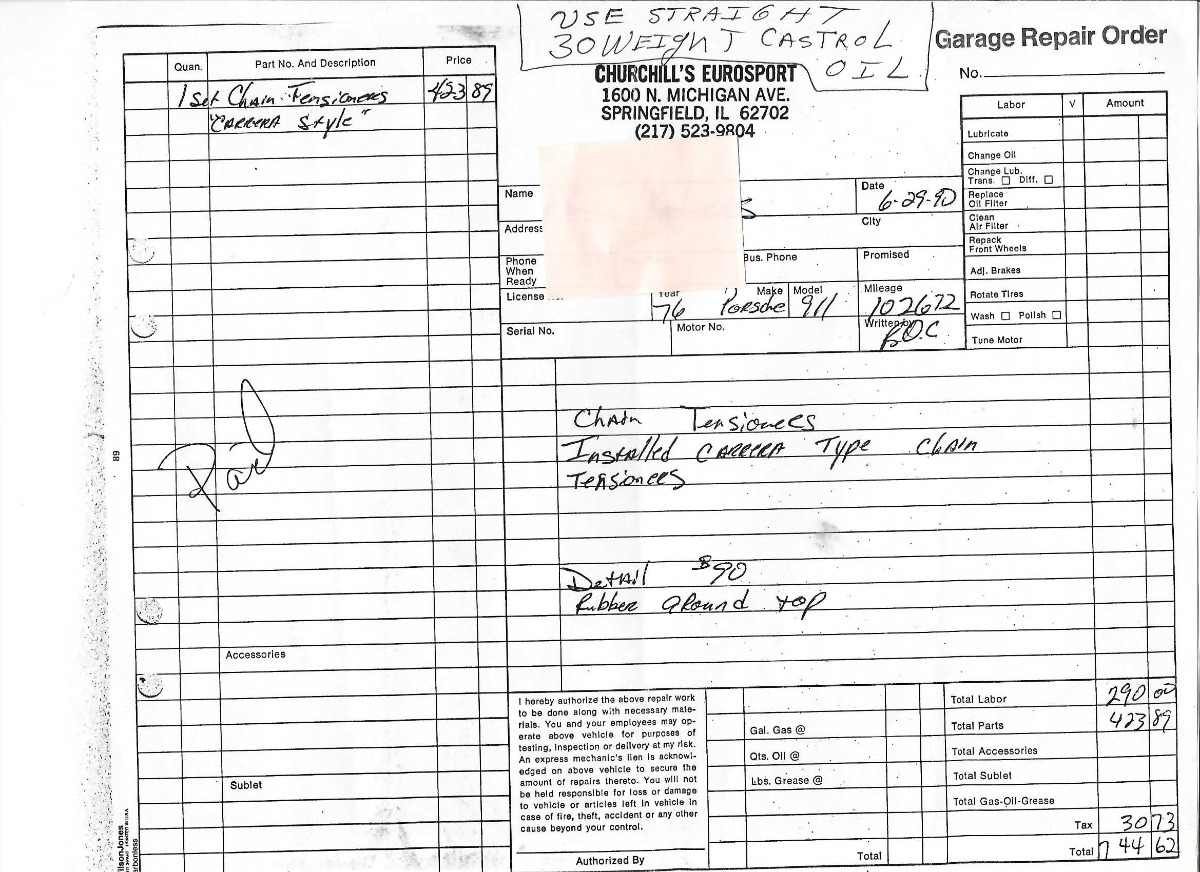 USE STRAIGHT
30 WEIGHT CASTROL
OIL
Garage Repair Order
CHURCHILL'S EUROSPORT
1600 N. MICHIGAN AVE.
SPRINGFIELD, IL 62702
(217) 523-9804
No.
Quan. Part No. And Description Price
1 Set Chain Tensioners 423 89
"CARRERA Style"
Paid
89
Accessories
Sublet
Name
Date
6-29-90
Address
City
Phone
When
Ready
Bus. Phone
Promised
License
Year
76
Make
Porsche
Model
911
Mileage
102672
Serial No.
Motor No.
Written by
B.O.C
Labor √ Amount
Lubricate
Change Oil
Change Lub.
Trans. □ Diff. □
Replace
Oil Filter
Clean
Air Filter
Repack
Front Wheels
Adj. Brakes
Rotate Tires
Wash □ Polish □
Tune Motor
Chain Tensioners
Installed CARRERA Type Chain
Tensioners
Detail $90
Rubber around top
I hereby authorize the above repair work
to be done along with necessary mate-
rials. You and your employees may op-
erate above vehicle for purposes of
testing, inspection or delivery at my risk.
An express mechanic's lien is acknowl-
edged on above vehicle to secure the
amount of repairs thereto. You will not
be held responsible for loss or damage
to vehicle or articles left in vehicle in
case of fire, theft, accident or any other
cause beyond your control.
Authorized By
Gal. Gas @
Qts. Oil @
Lbs. Grease @
Total
Total Labor 290 00
Total Parts 423 89
Total Accessories
Total Sublet
Total Gas-Oil-Grease
Tax 30 73
Total 744 62